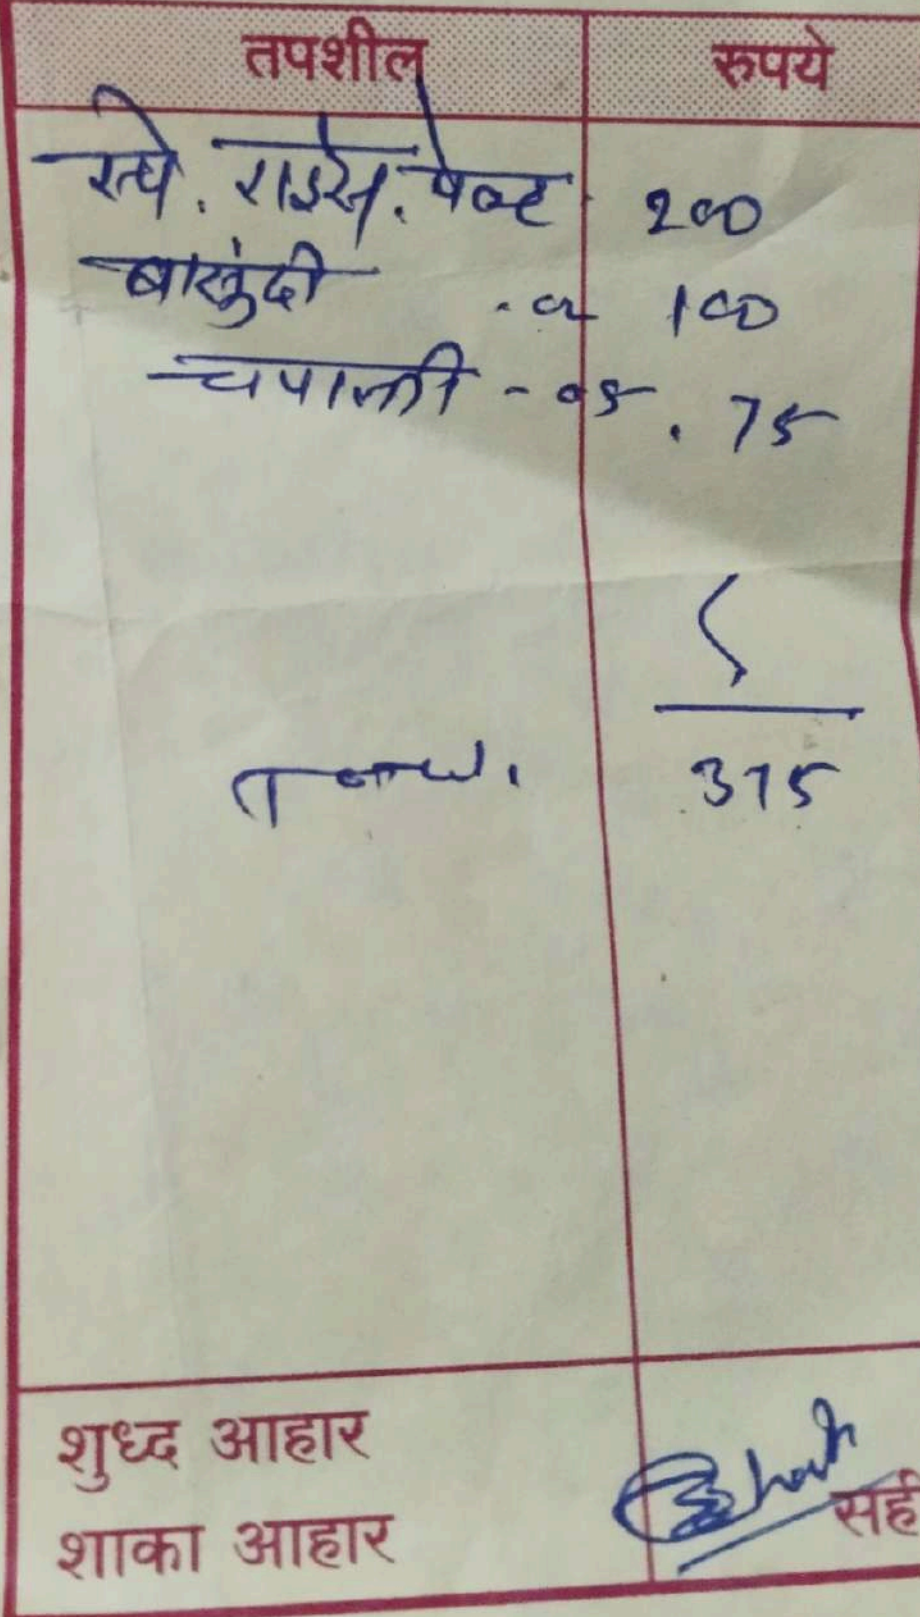 तपशील रुपये
स्पे. राईस. प्लेट 200
बासुंदी - 02 100
चपाती - 05 . 75
Total. 375
शुध्द आहार
शाका आहार सही